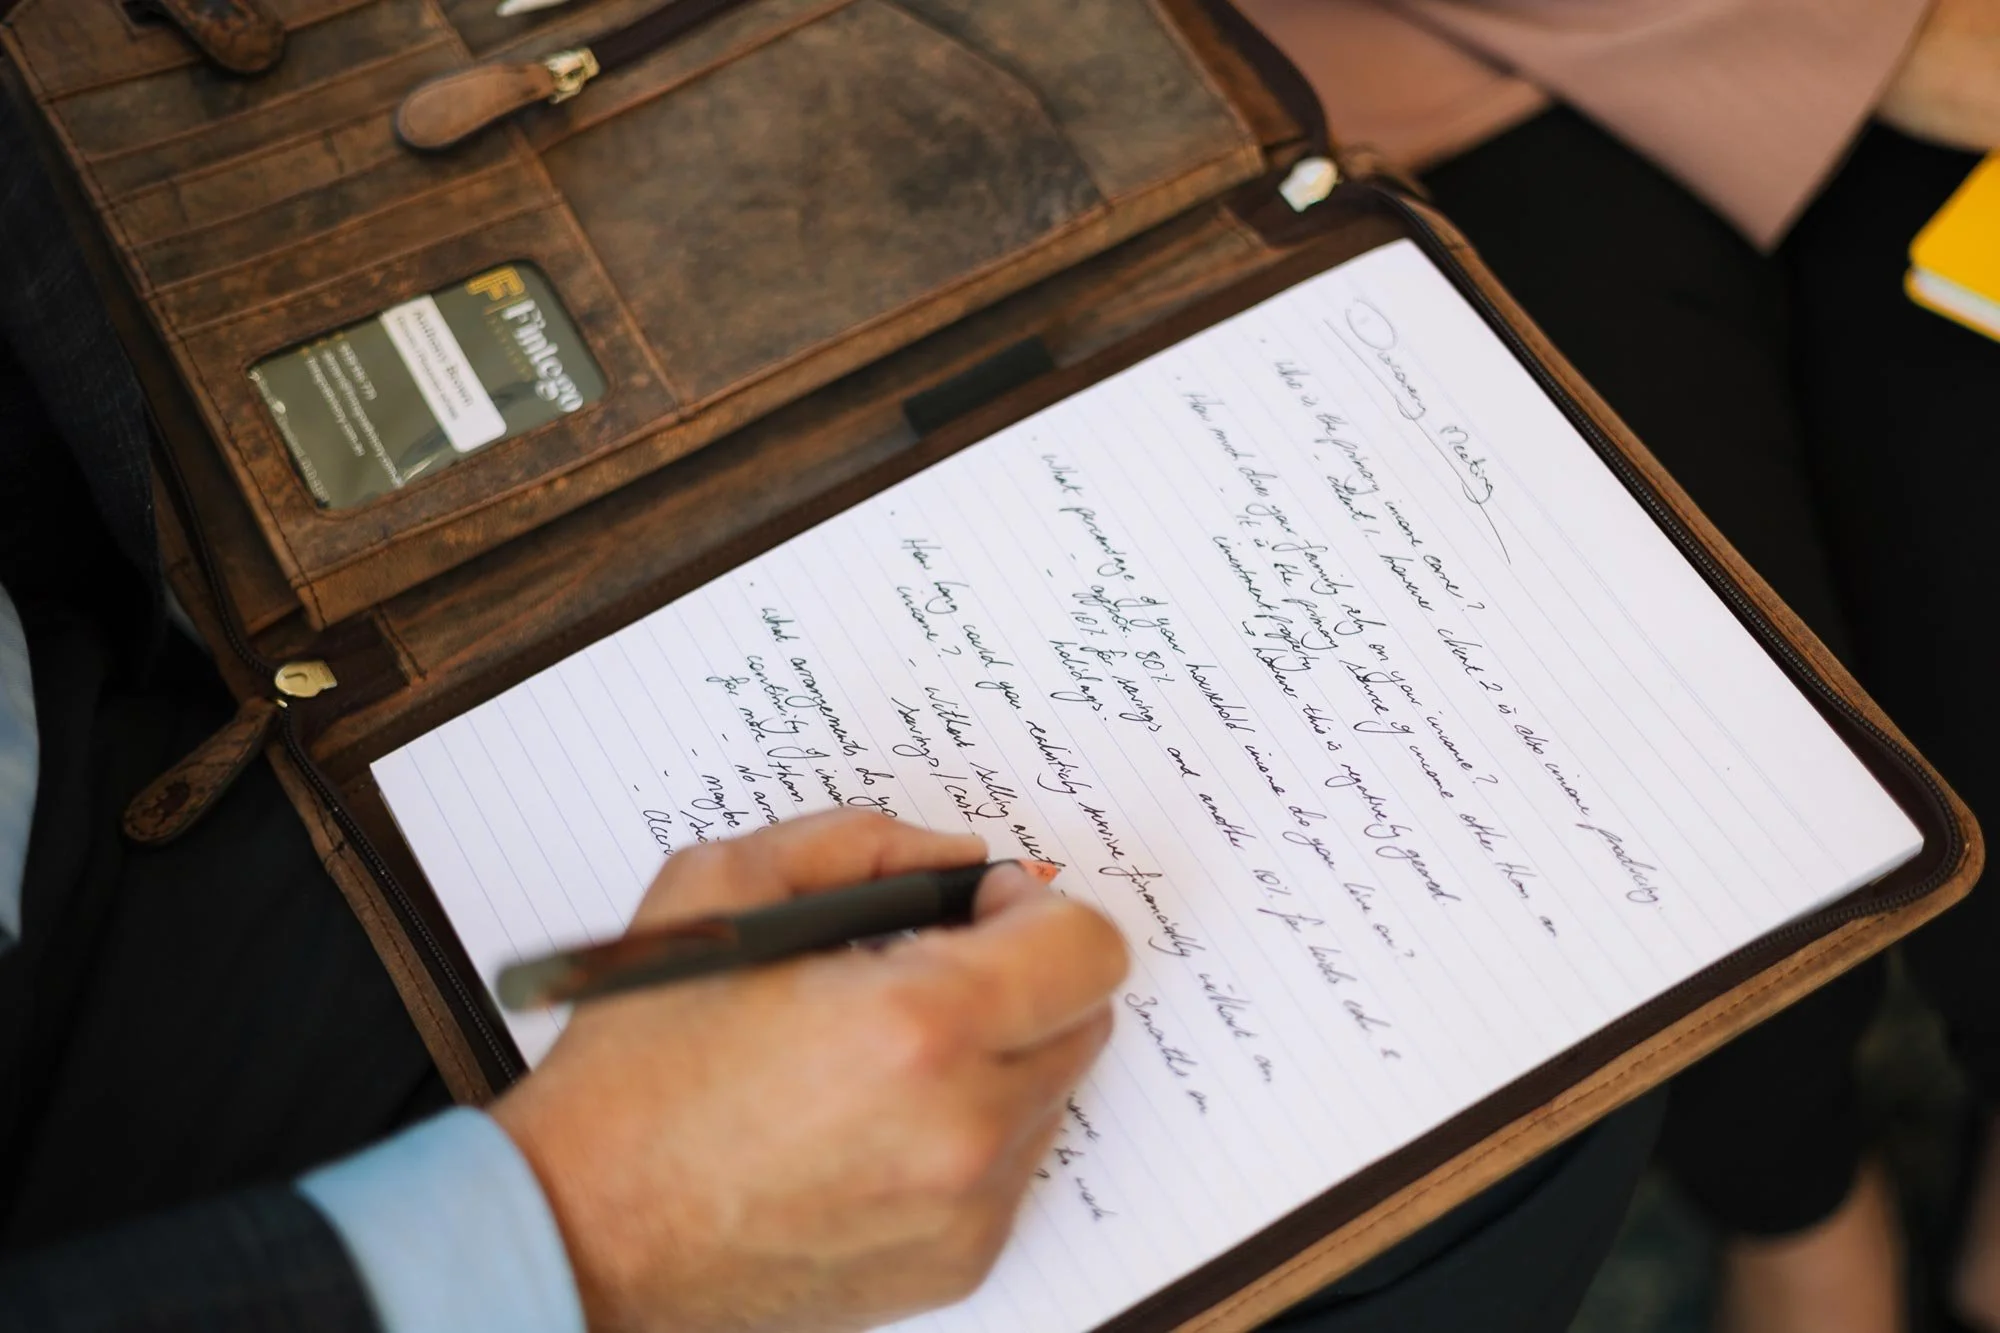 Discovery Meeting
• Who is the primary income earner?
- Client 1. however client 2 is also income producing.
• How much does your family rely on your income?
- It is the primary source of income other than an
investment property
↳ however this is negatively geared.
• What percentage of your household income do you live on?
- approx. 80%
- 10% for savings and another 10% for kids ed. &
holidays.
• How long could you realistically survive financially without an
income?
- Without selling assets 3 months on
savings / cash
• What arrangements do you
continuity of to work
for more than ?
- No
- maybe
Finlego
Anthony Brown